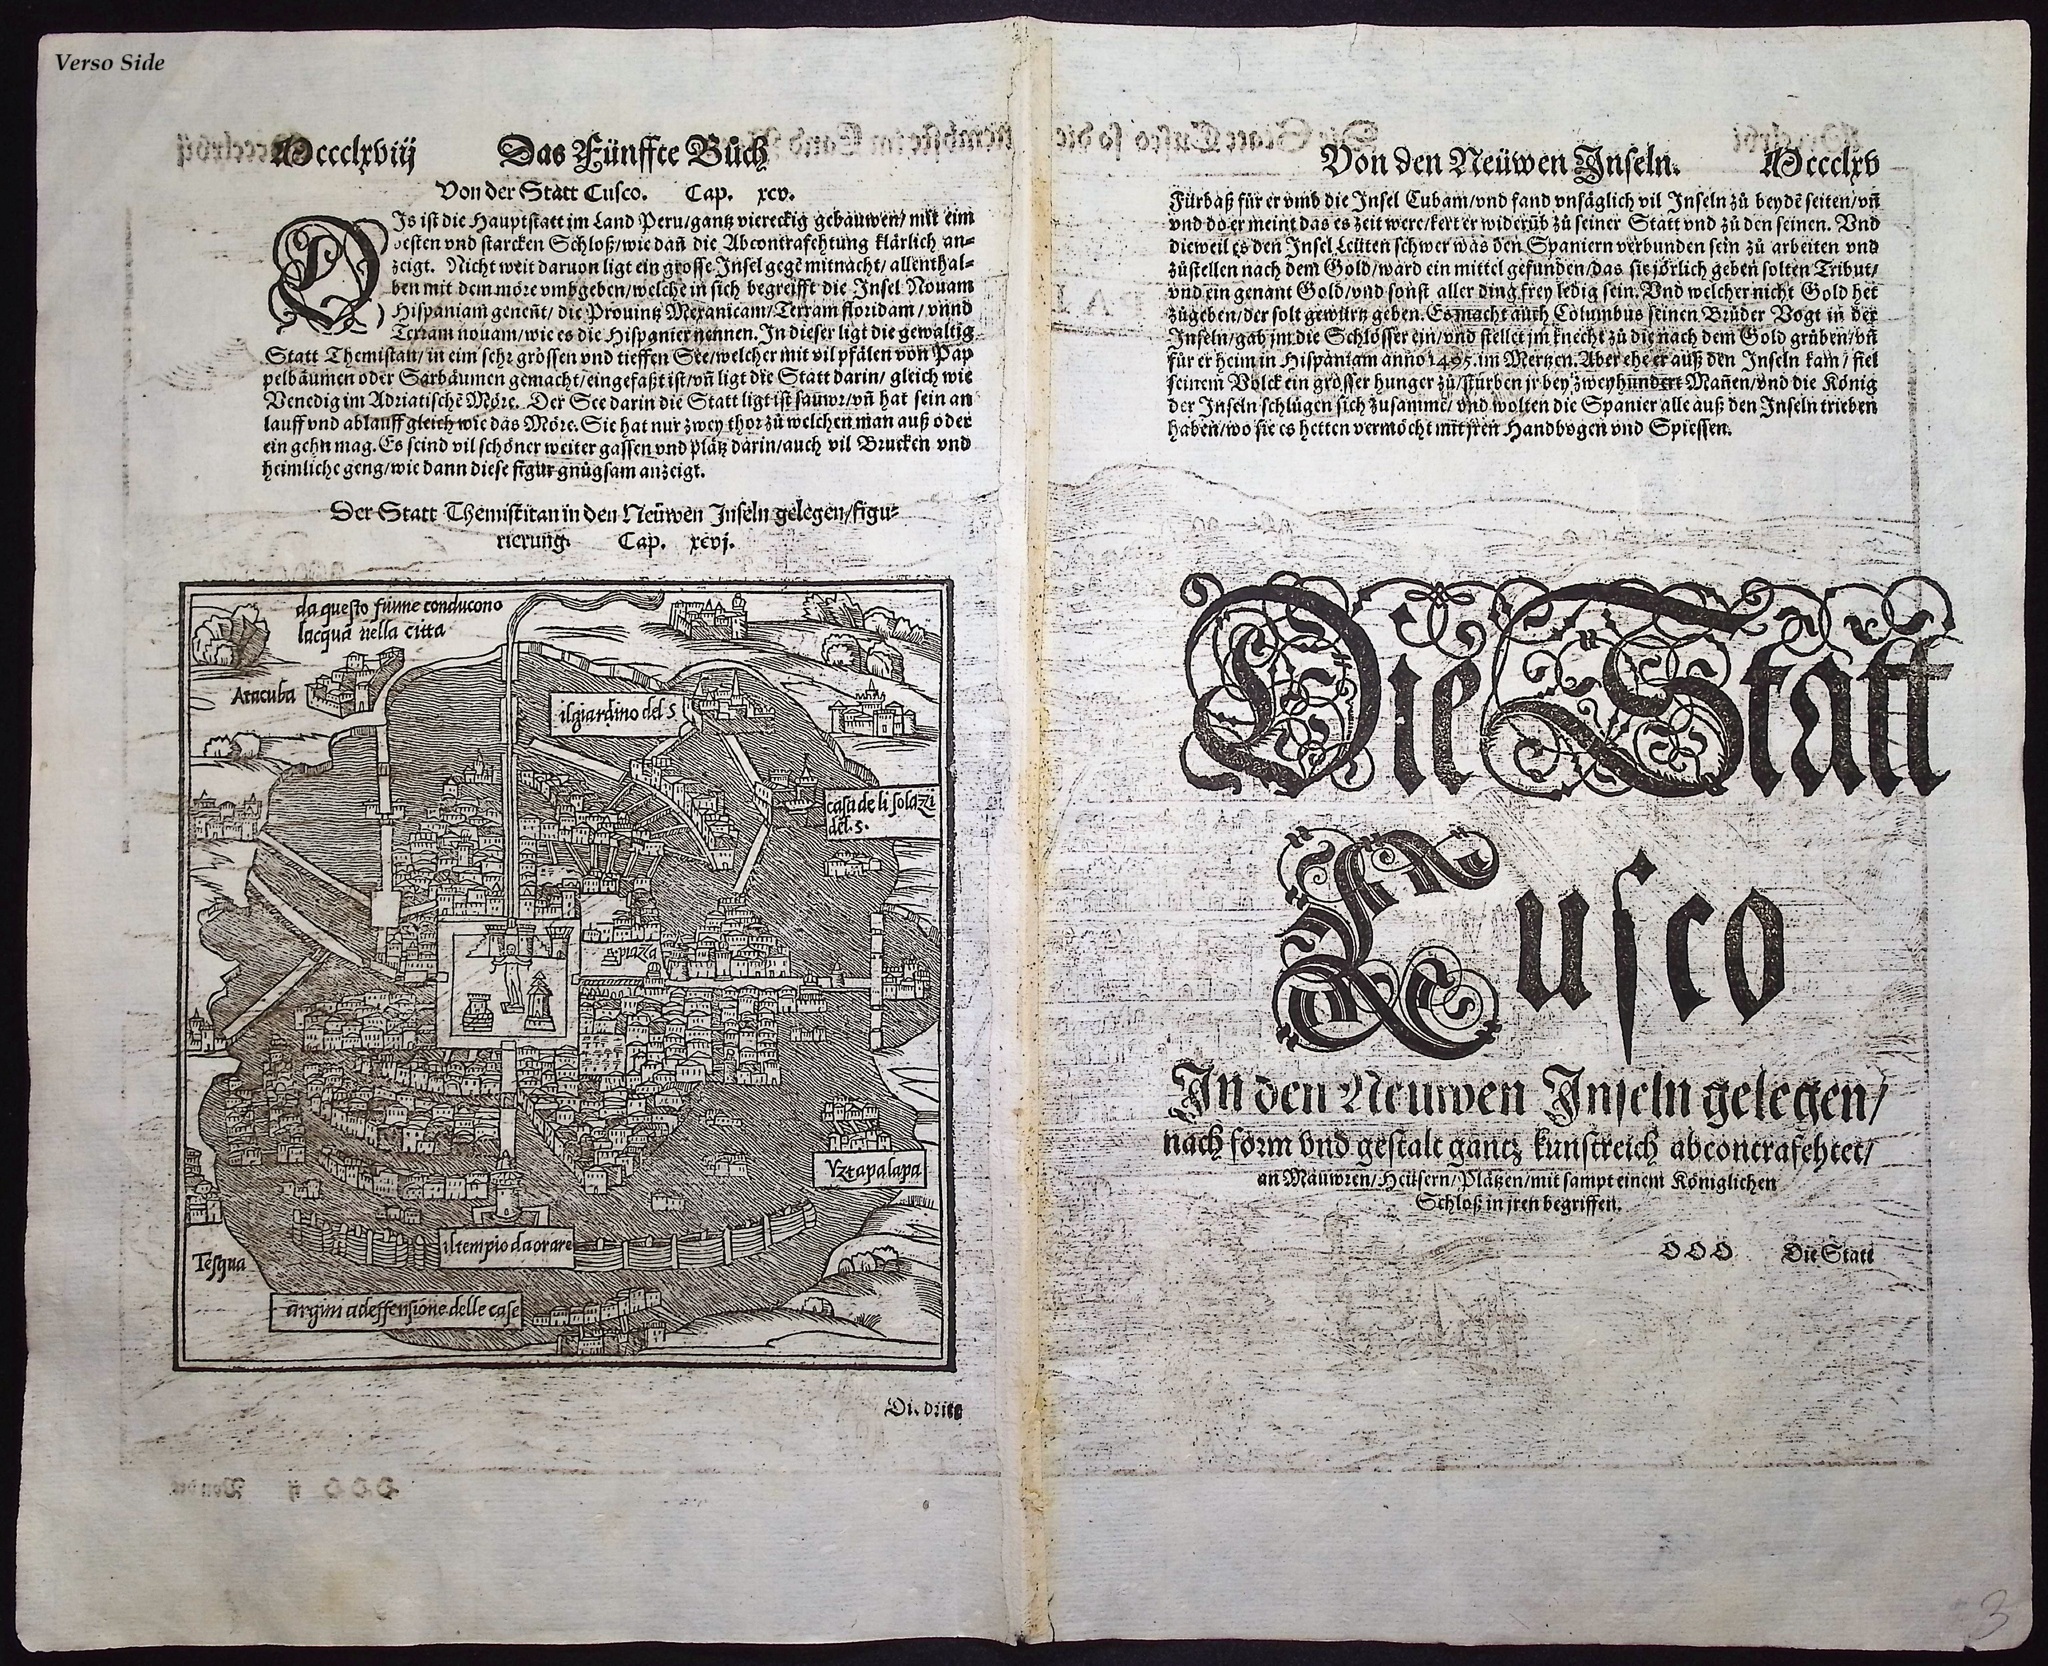 Verso Side
Mccclxviij Das Fünffte Bůch
Von der Statt Cusco. Cap. xcv.
DIs ist die Hauptstatt im Land Peru/gantz viereckig gebauwen/ mit eim
vesten vnd starcken Schloß/wie dañ die Abcontrafehtung klärlich an-
zeigt. Nicht weit daruon ligt ein grosse Insel gegē mitnacht/ allenthal-
ben mit dem möre vmbgeben/welche in sich begreifft die Insel Nouam
Hispaniam geneñt/ die Prouintz Mexanicam/Terram floridam/ vnnd
Terram nouam/wie es die Hispanier nennen. In dieser ligt die gewaltig
Statt Themistan/ in eim sehr grossen vnd tieffen See/welcher mit vil pfälen von Pap
pelbäumen oder Sarbäumen gemacht/eingefaßt ist/vñ ligt die Statt darin/ gleich wie
Venedig im Adriatischē Möre. Der See darin die Statt ligt ist sauwr/vñ hat sein an
lauff vnd ablauff gleich wie das Möre. Sie hat nur zwey thor zů welchen man auß oder
ein gehn mag. Es seind vil schöner weiter gassen vnd plätz darin/auch vil Brucken vnd
heimliche geng/wie dann diese figur gnůgsam anzeigt.
Der Statt Themistitan in den Neüwen Inseln gelegen/figu-
rierung. Cap. xcvj.
da questo fiume conducono
lacqua nella citta
Atacuba
il giardino del S
casa de li solazzi
del. S.
piazza
Yztapalapa
il tempio da orare
Tesqua
argini adeffensione delle case
Von den Neüwen Inseln. Mccclxv
Fürbaß für er vmb die Insel Cubam/vnd fand vnsäglich vil Inseln zů beydē seiten/vñ
vnd do er meint das es zeit were/kert er widerüb zů seiner Statt vnd zů den seinen. Vnd
dieweil es den Insel Leüten schwer was den Spaniern verbunden sein zů arbeiten vnd
zůstellen nach dem Gold/ward ein mittel gefunden/das sie jörlich geben solten Tribut/
vnd ein genant Gold/vnd sonst aller ding frey ledig sein. Vnd welcher nicht Gold het
zůgeben/der solt gewürtz geben. Es macht auch Columbus seinen Brůder Vogt in der
Inseln/gab jm die Schlösser ein/vnd stellet jm knecht zů die nach dem Gold grüben/vñ
für er heim in Hispaniam anno 1495. im Mertzen. Aber ehe er auß den Inseln kam/ fiel
seinem Volck ein grosser hunger zů/sturben jr bey zwey hundert Mañen/vnd die König
der Inseln schlůgen sich zusammē/ vnd wolten die Spanier alle auß den Inseln trieben
haben/wo sie es hetten vermöcht mit jren Handbogen vnd Spiessen.
Die Statt
Cusco
In den Neuwen Inseln gelegen/
nach form vnd gestalt gantz kunstreich abcontrafehtet/
an Mauwren/Heüsern/Plätzen/mit sampt einem Königlichen
Schloß in jren begriffen.
OOO Die Statt
3